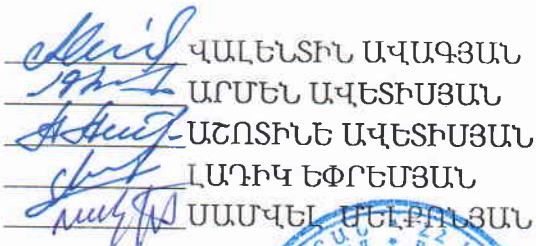 ՎԱԼԵՆՏԻՆ ԱՎԱԳՅԱՆ
ԱՐՄԵՆ ԱՎԵՏԻՍՅԱՆ
ԱՇՈՏՒՆԵ ԱՎԵՏԻՍՅԱՆ
ԼԱԴԻԿ ԵՓՐԵՄՅԱՆ
ՍԱՄՎԵԼ ՄԵԼՔՈՆՅԱՆ